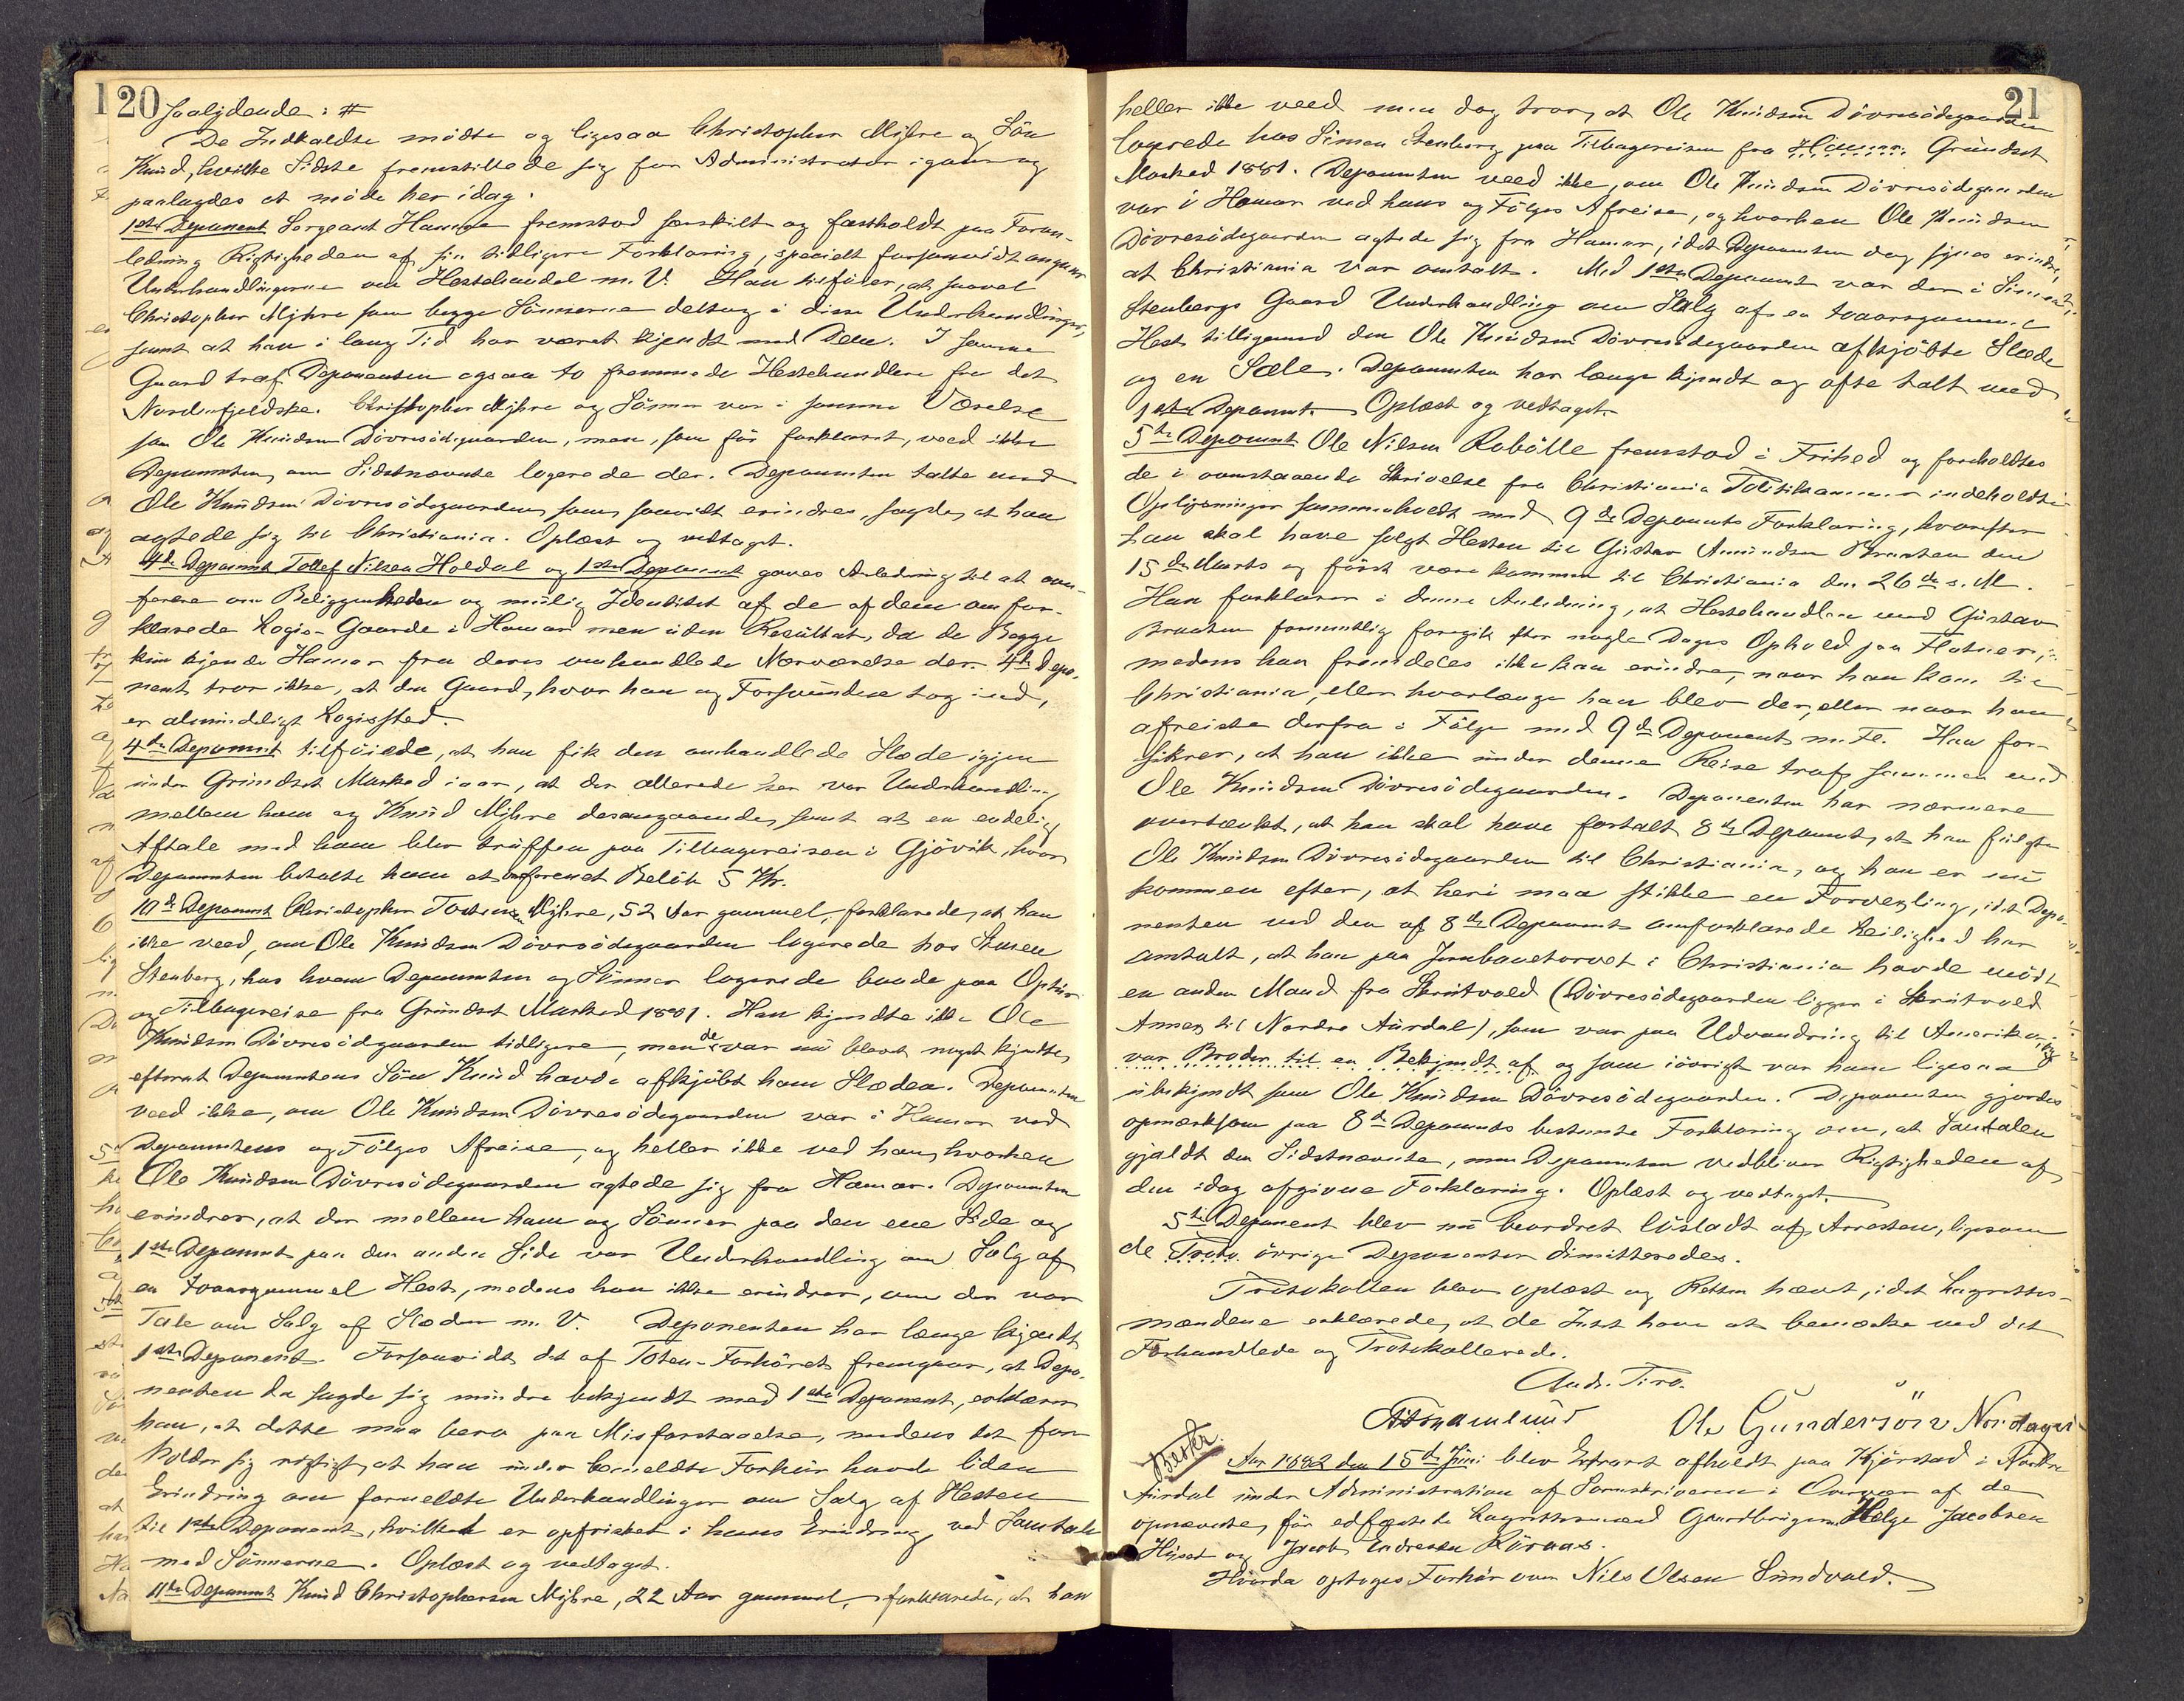 20
Saalydende: #
De Indkaldte mödte og ligesaa Christopher Myhre og Sön
Knud, hvilke Sidste fremstillede sig for Administrator igaar og
paalagdes at möde her idag.
1ste Deponent Sergeant Hauge fremstod særskilt og fastholdt paa Foran-
ledning Rigtigheden af sin tidligere Forklaring, specielt forsaavidt angaar
Underhandlingerne om Hestehandel m. V. Han tilföier, at saavel
Christopher Myhre som begge Sönnerne deltog i disse Underhandlinger,
samt at han i lang Tid har været kjendt med Dem. I samme
Gaard traf Deponenten ogsaa to fremmede Hestehandlere fra det
Nordenfjeldske. Christopher Myhre og Sönner var i samme Værelse
som Ole Knudsen Dövresödegaarden, men, som för forklaret, veed ikke
Deponenten, om Sidstnævnte logerede der. Deponenten talte med
Ole Knudsen Dövresödegaarden, som, saavidt erindres, sagde, at han
agtede sig til Christiania. Oplæst og vedtaget.
4de Deponent Tollef Nilsen Holdal og 1ste Deponent gaves Anledning til at con-
ferere om Beliggenheden og mulig Identitet af de af dem omfor-
klarede Logis-Gaarde i Hamar men uden Resultat, da de Begge
kun kjende Hamar fra deres omhandlede Nærværelse der. 4de Depo-
nent tror ikke, at den Gaard, hvor han og Forsvundne tog ind,
er almindeligt Logissted.
4de Deponent tilföiede, at han fik den omhandlede Slæde igjen
under Grundset Marked iaar, at der allerede her var Underhandling
mellem ham og Knud Myhre desangaaende, samt at en endelig
Aftale med ham blev truffen paa Tilbagereisen i Gjövik, hvor
Deponenten betalte ham et omforenet Belöb 5 Kr.
10de Deponent Christopher Tostensen Myhre, 52 Aar gammel, forklarede, at han
ikke veed, om Ole Knudsen Dövresödegaarden logerede hos Simen
Stenberg, hos hvem Deponenten og Sönner logerede baade paa Optur
og Tilbagereise fra Grundset Marked 1881. Han kjendte ikke Ole
Knudsen Dövresödegaarden tidligere, men de var nu blevet noget kjendte,
efterat Deponentens Sön Knud havde afkjöbt ham Slæden. Deponenten
veed ikke, om Ole Knudsen Dövresödegaarden var i Hamar ved
Deponentens og Fölges Afreise, og heller ikke ved han, hvorhen
Ole Knudsen Dövresödegaarden agtede sig fra Hamar. Deponenten
erindrer, at der mellem ham og Sönner paa den ene Side og
1ste Deponent paa den anden Side var Underhandling om Salg af
en toaarsgammel Hest, medens han ikke erindrer, om der var
Tale om Salg af Slæder m. V. Deponenten har længe kjendt
1ste Deponent. Forsaavidt det af Toten-Forhöret fremgaar, at Depo-
nenten da sagde sig mindre bekjendt med 1ste Deponent, erklærer
han, at dette maa bero paa Misforstaaelse, medens det for-
holder sig rigtigt, at han under bemeldte Forhör havde liden
Erindring om formeldte Underhandlinger om Salg af Hesten
til 1ste Deponent, hvilket er opfrisket i hans Erindring ved Samtale
med Sönnerne. Oplæst og vedtaget.
11te Deponent Knud Christophersen Myhre, 22 Aar gammel, forklarede, at han
21
heller ikke veed men dog tror, at Ole Knudsen Dövresödegaarden
logrede hos Simen Stenberg paa Tilbagereisen fra Hamar Grundset
Marked 1881. Deponenten veed ikke, om Ole Knudsen Dövresödegaarden
var i Hamar ved hans og Fölges Afreise, og hvorhen Ole Knudsen
Dövresödegaarden agtede sig fra Hamar, idet Deponenten dog synes erindre,
at Christiania var omtalt. Med 1ste Deponent var der i Simen
Stenbergs Gaard Underhandling om Salg af en toaarsgammel
Hest tilligemed den Ole Knudsen Dövresödegaarden afkjöbte Slæde
og en Sæle. Deponenten har længe kjendt og ofte talt med
1ste Deponent. Oplæst og vedtaget.
5te Deponent Ole Nilsen Robölle fremstod i Frihed og foreholdtes
de i ovenstaaende Skrivelse fra Christiania Politikammer indeholdte
Oplysninger sammenholdt med 9de Deponents Forklaring, hvorefter
han skal have solgt Hesten til Gustav Amundsen Braaten den
15de Marts og först være kommen til Christiania den 26de s. M.
Han forklarer i denne Anledning, at Hestehandlen med Gustav
Braaten formentlig foregik efter nogle Dages Ophold paa Flatner,
medens han fremdeles ikke kan erindre, naar han kom til
Christiania, eller hvorlænge han blev der, eller naar han
afreiste derfra i Fölge med 9de Deponent m. Fl. Han for-
sikrer, at han ikke under denne Reise traf sammen med
Ole Knudsen Dövresödegaarden. Deponenten har nærmere
overtænkt, at han skal have fortalt 8de Deponent, at han fulgte
Ole Knudsen Dövresödegaarden til Christiania, og han er nu
kommen efter, at heri maa stikke en Forvexling, idet Depo-
nenten ved den af 8de Deponent omforklarede Leilighed har
omtalt, at han paa Jernbanetorvet i Christiania havde mödt
en anden Mand fra Skrutvold (Dövresödegaarden ligger i Skrutvold
Annex til Nordre Aurdal), som var paa Udvandring til Amerika,
var Broder til en Bekjendt af og som iövrigt var ham ligesaa
ubekjendt som Ole Knudsen Dövresödegaarden. Deponenten gjordes
opmærksom paa 8de Deponents bestemte Forklaring om, at Samtalen
gjaldt den Sidstnævnte, men Deponenten vedbliver Rigtigheden af
den idag afgivne Forklaring. Oplæst og vedtaget.
5te Deponent blev nu beordret lösladt af Arresten, ligesom
de Proto. övrige Deponenter dimitteredes.
Protokollen blev oplæst og Retten hævet, idet Lagrettes-
mændene erklærede, at de Intet have at bemærke ved det
Forhandlede og Protokollerede.
Ole Gundersön Nordager
Beskr.
Aar 1882 den 15de Juni blev Extraret afholdt paa Kjörstad i Nordre
Aurdal under Administration af Sorenskriveren i Overvær af de
opnævnte, för edfæstede Lagrettesmænd Gaardbrugerne Helge Jacobsen
og Jacob Endresen Röraas.
Hvorda optoges Forhör over Nils Olsen Sundvold.